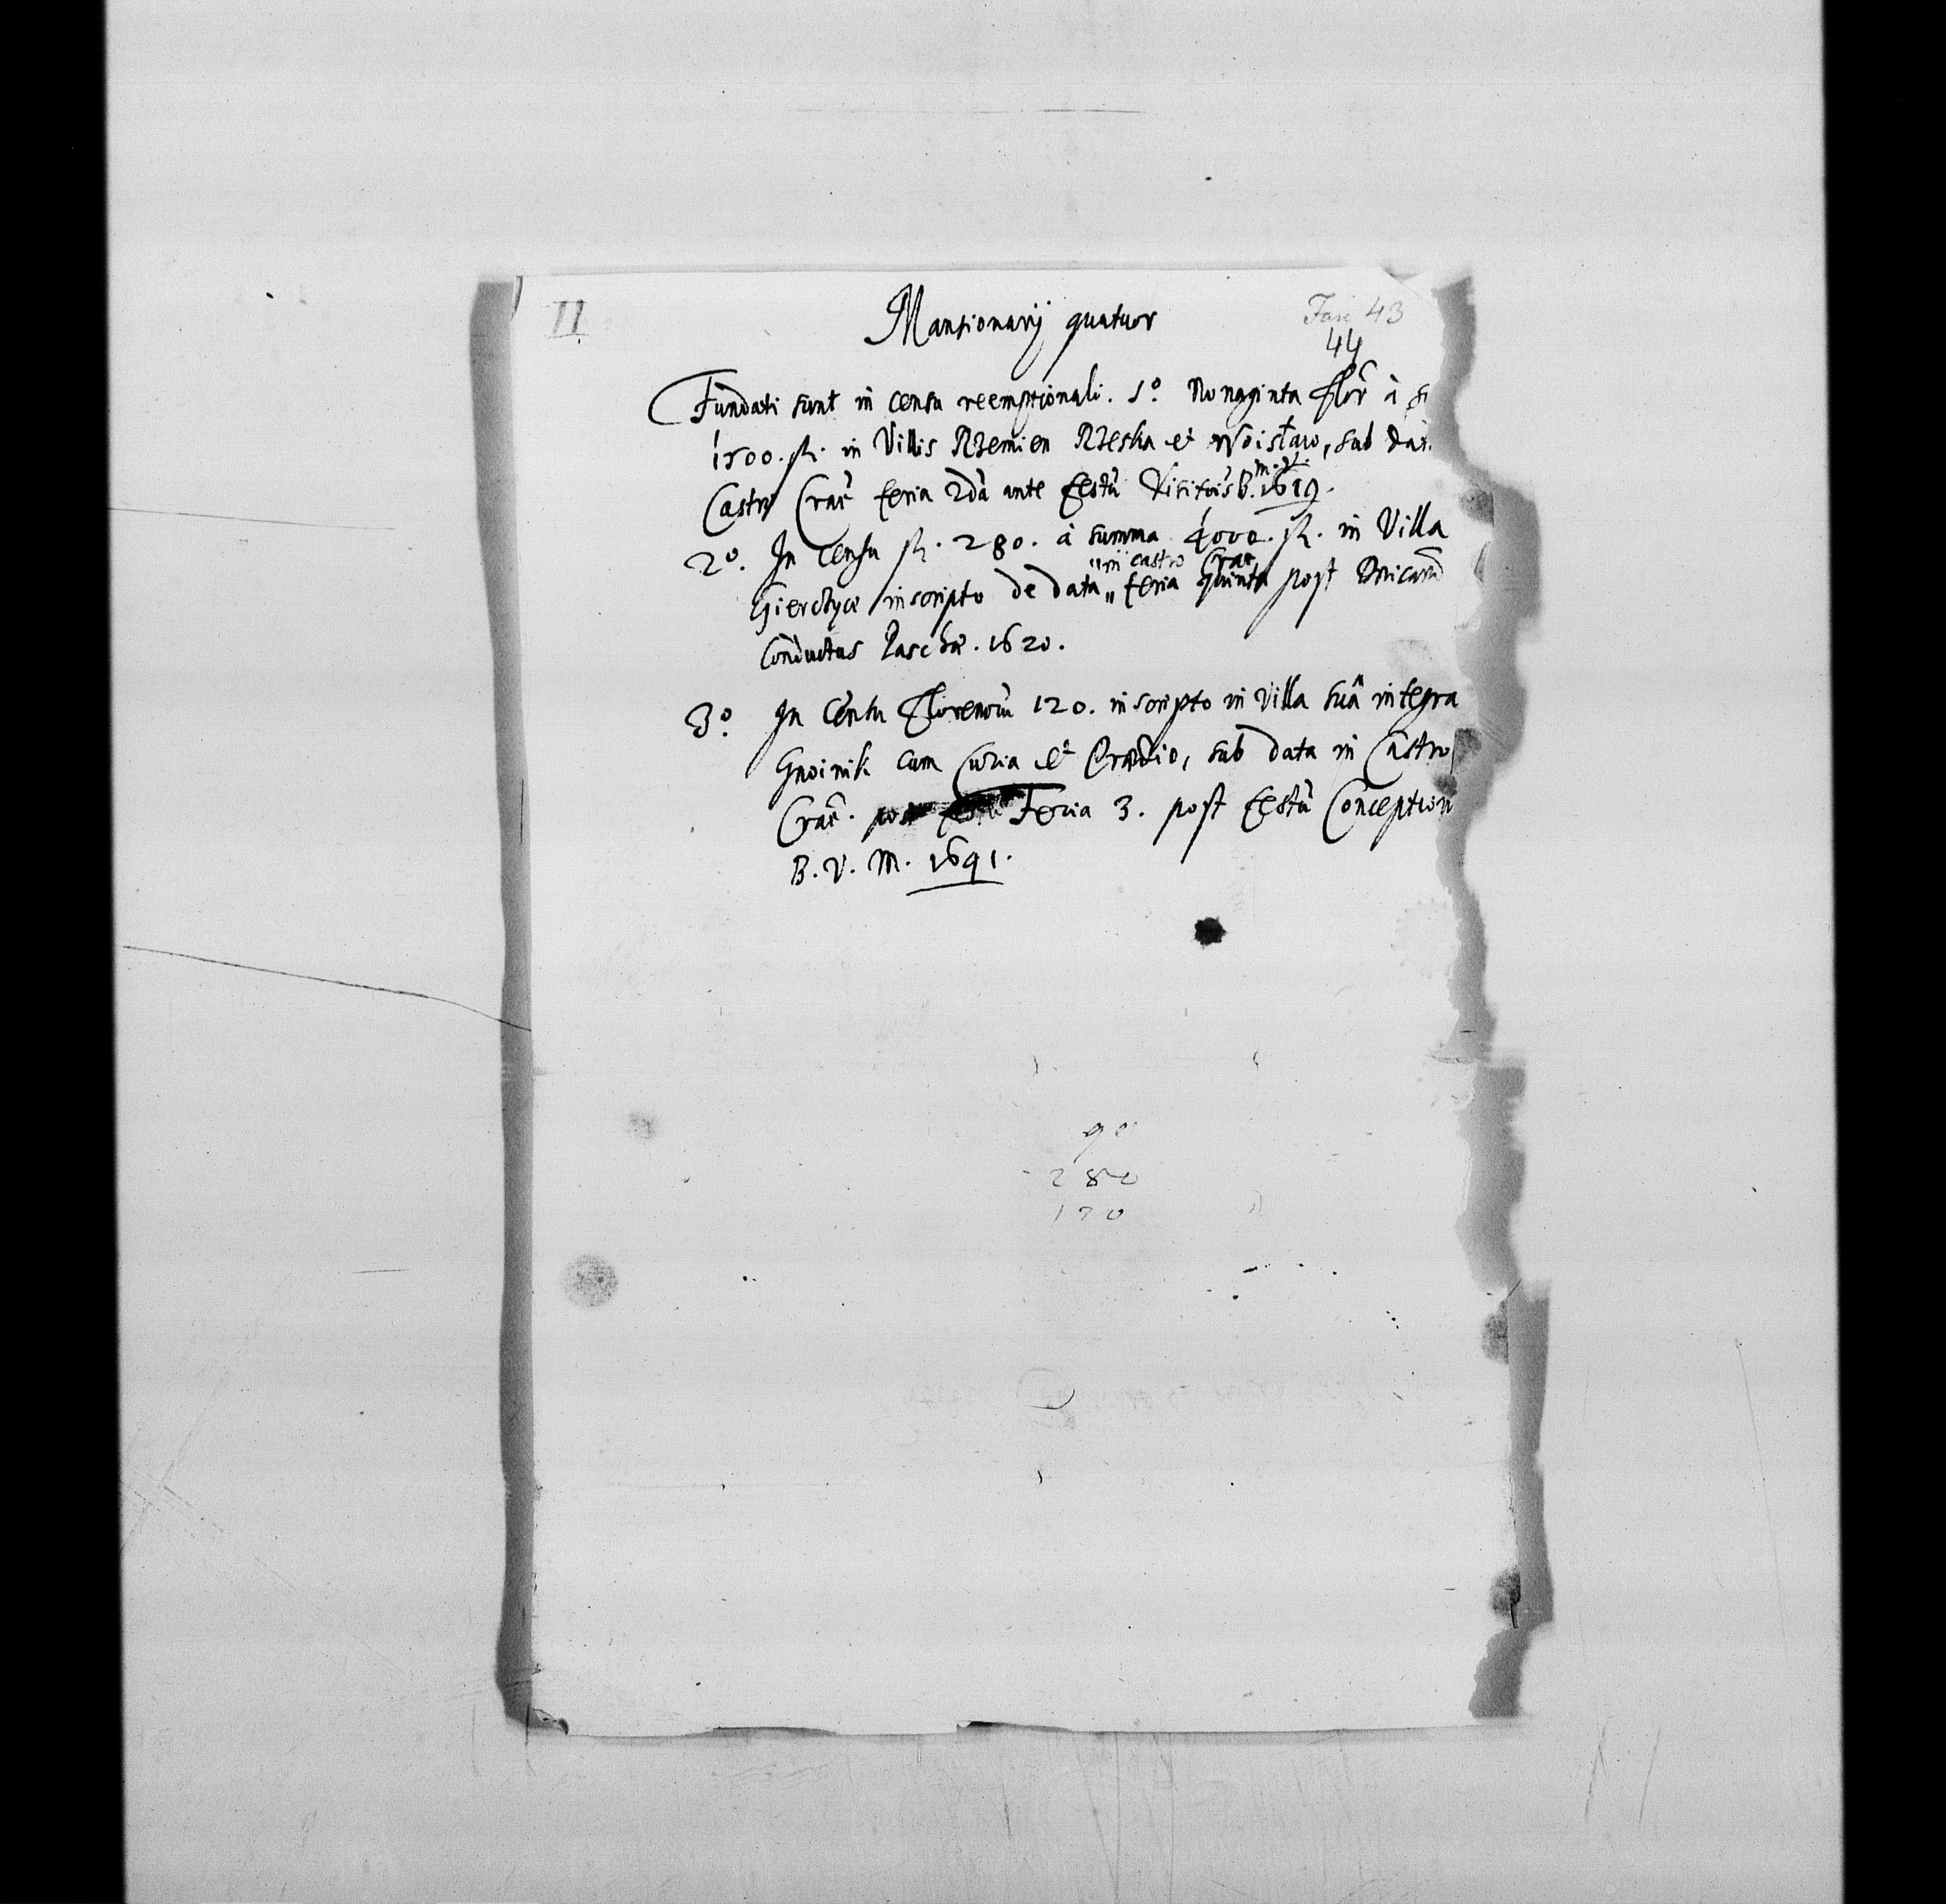 II
Mansionarij quatuor
Fasc 43
44
Fundati sunt in censu reemptionali. 1º Nonaginta Flor̃ à
1500. fl. in Villis Rzemien Rzeska et Woisław, sub dat
Castri Crac̃ feria 2dà ante festũ Visitõis B. m. V. 1619.
2º. In censu fl. 280. à summa 4000. fl. in Villa
"in castro Crac
Gierczyce inscripto de data " feria quinta post Dnicam̃
Conductus Paschæ. 1620.
3º In Censu Florenorũ 120. inscripto in Villa suâ integra
Gnoinik cum Curia et Prædio, sub data in Castro
Crac̃. post Feria 3. post festũ Conception
B. V. M. 1691.
90
280
120